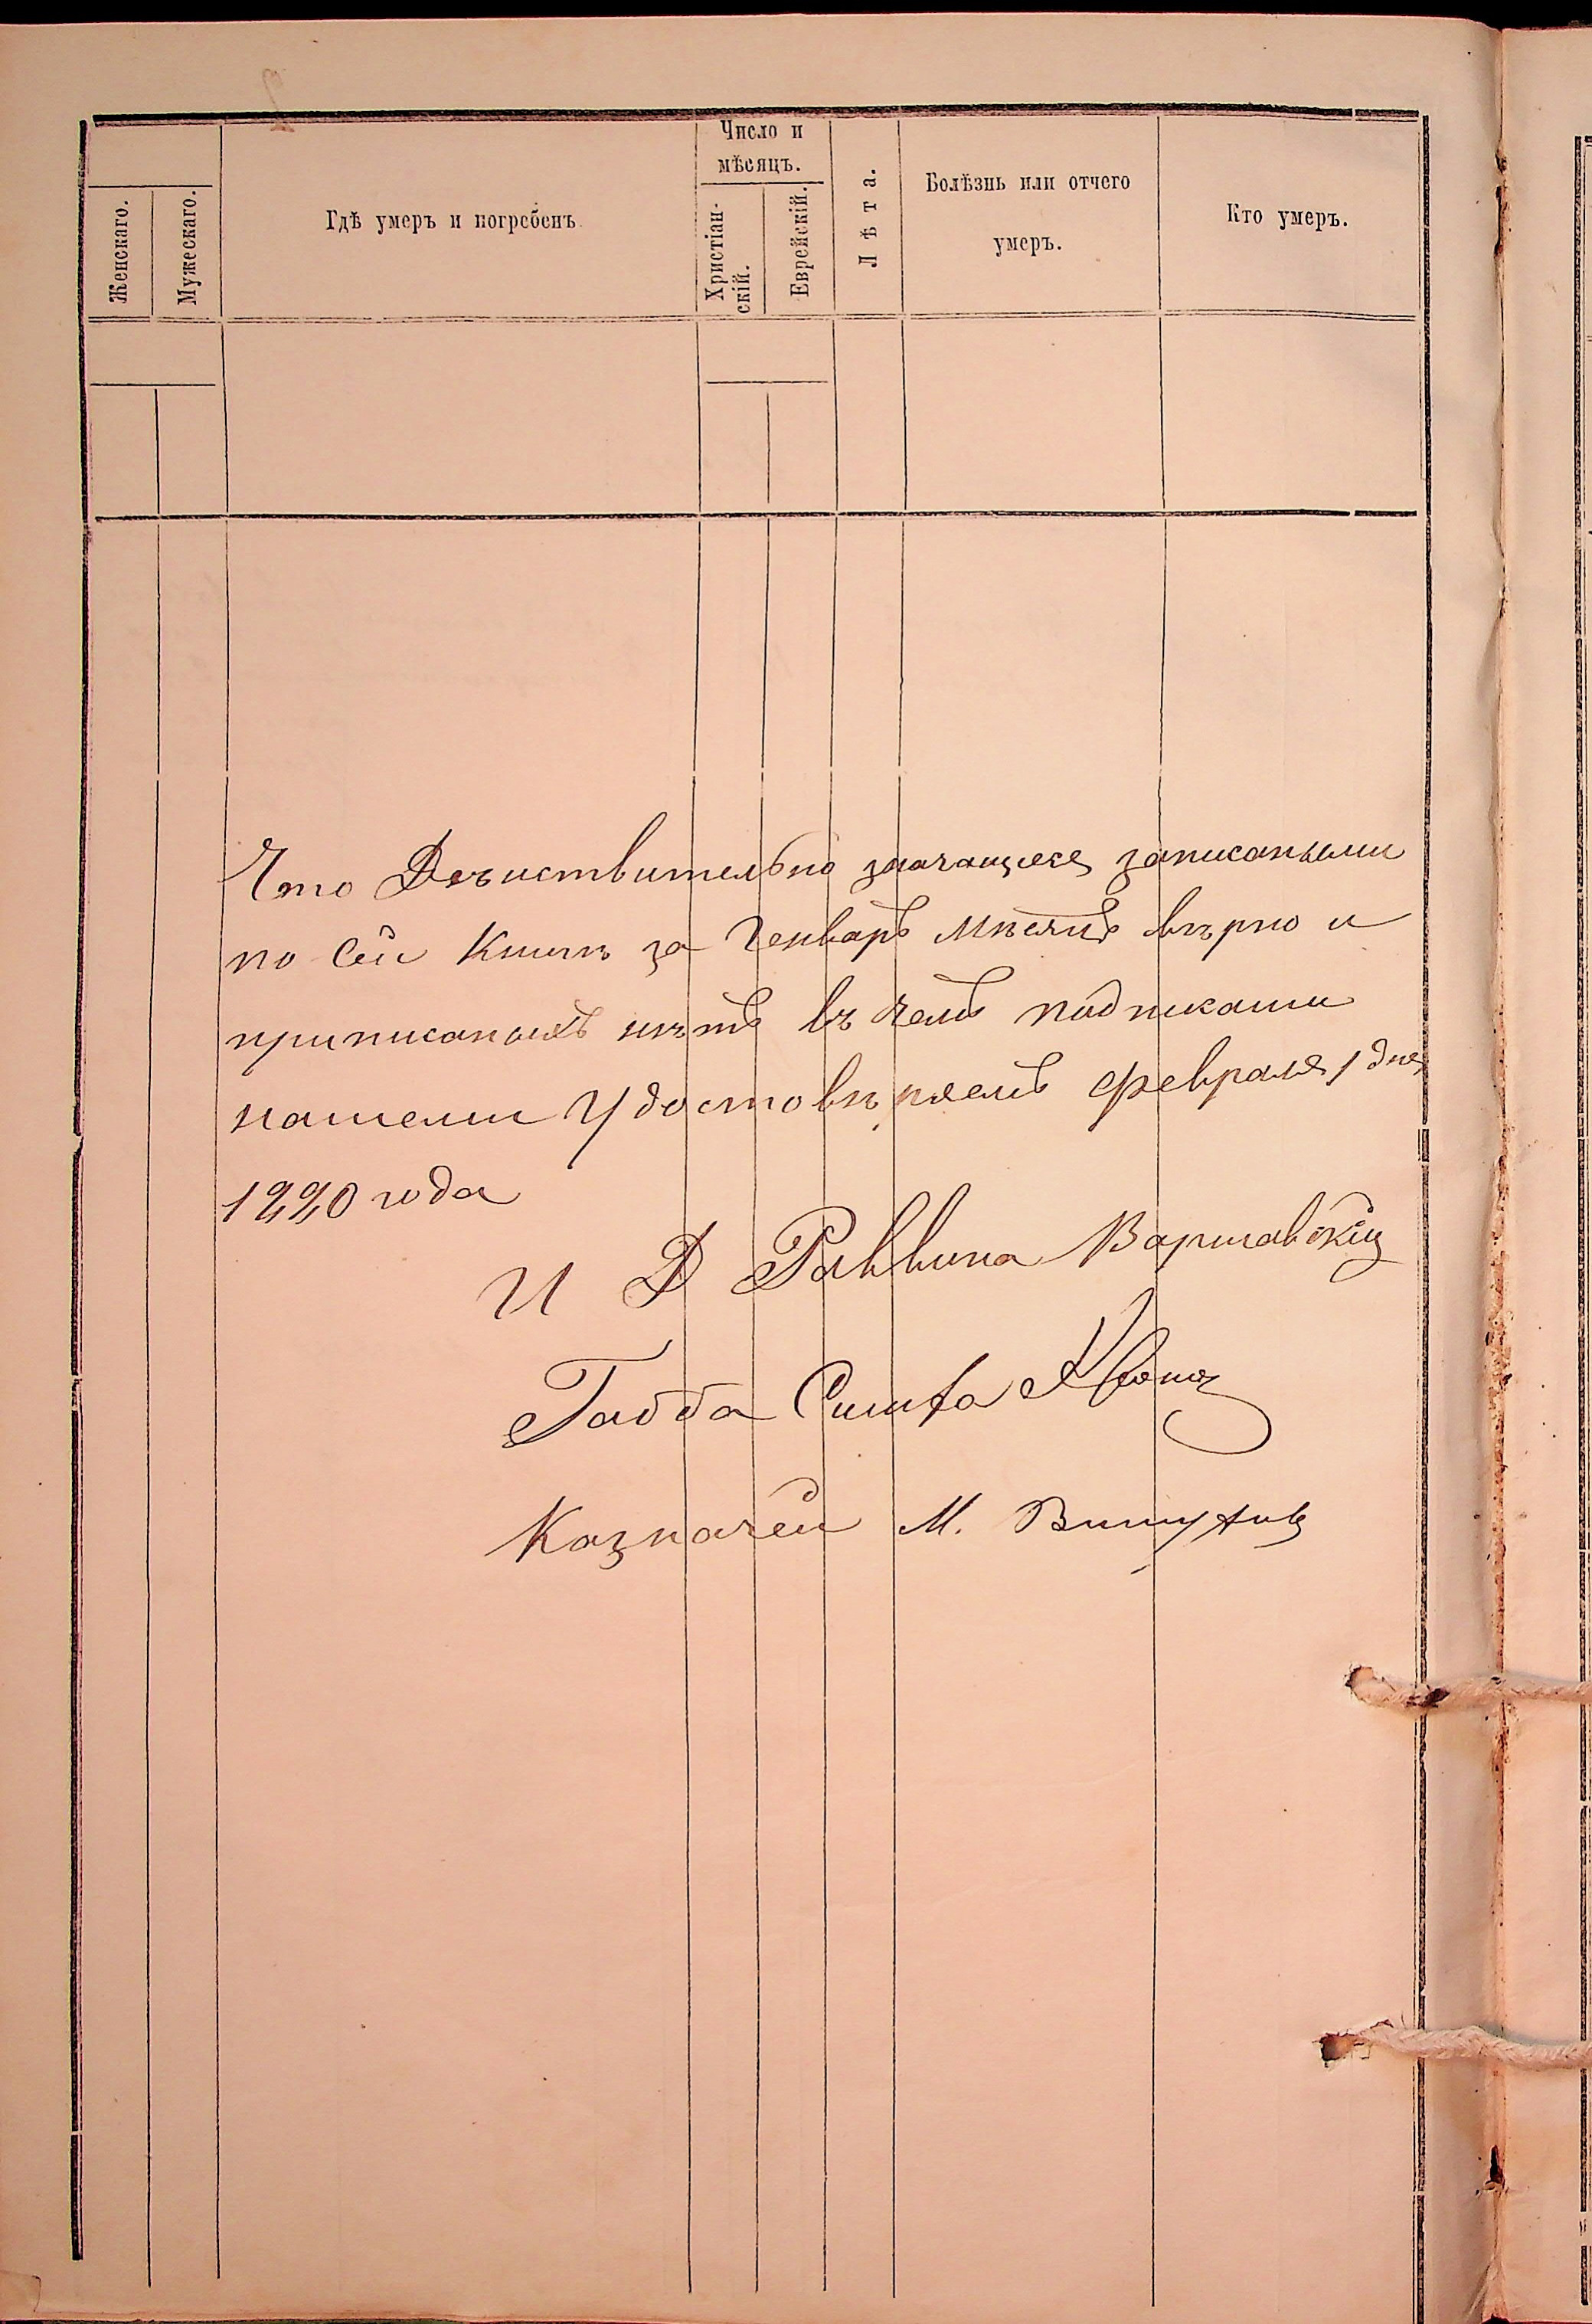 Женскаго.
Мужескаго.
Гдѣ умеръ и погребенъ
Число и
мѣсяцъ.
Христіан-
скій.
Еврейскій.
Лѣта.
Болѣзнь или отчего
умеръ.
Кто умеръ.
Что Дѣйствительно значащіеся записаными
по сей Книгѣ за Генварь мѣсяцъ вѣрно и
приписаныхъ нѣтъ въ чемъ подписами
нашеми Удостовѣряемъ февраля 1 дня
1880 года
И Д Раввина Варшавскій
Габба Симха
Казначей М.